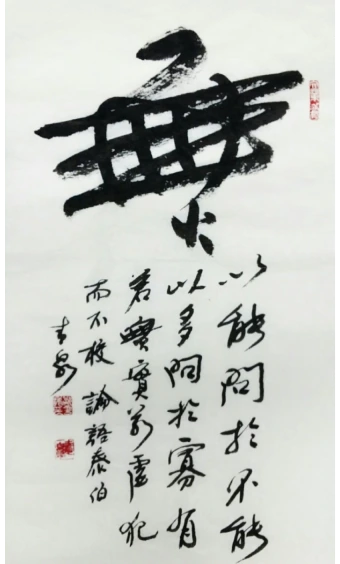 無
以能問於不能
以多問於寡有
若無實若虛犯
而不校 論語泰伯